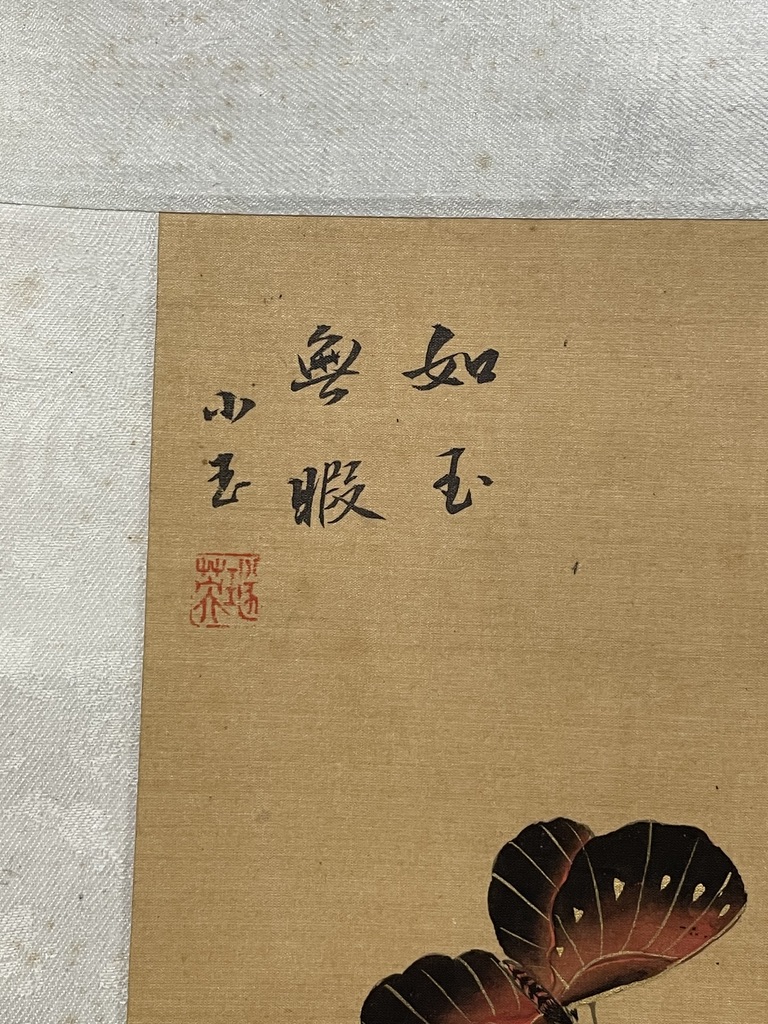 如玉
無暇
小玉